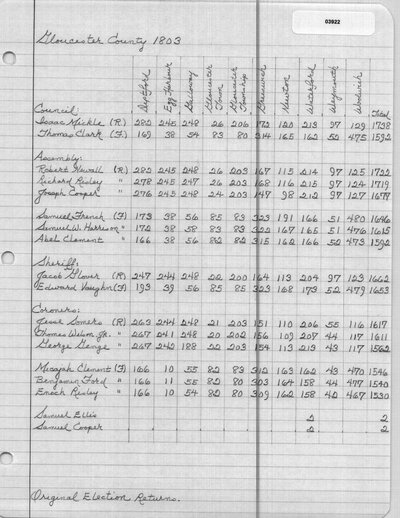 03922
Gloucester County 1803
Deptford Egg Harbour Galloway Gloucester Town Gloucester Township Greenwich Newton Waterford Weymouth Woolwich Total
Council:
Isaac Mickle (R) 282 245 248 26 206 172 120 213 97 129 1738
Thomas Clark (F) 169 38 54 83 80 314 165 162 52 475 1592
Assembly:
Robert Newell (R) 282 245 248 26 203 167 115 214 97 125 1722
Richard Risley " 278 245 247 26 203 168 116 215 97 124 1719
Joseph Cooper " 276 245 248 24 203 147 98 212 97 127 1677
Samuel French (F) 173 38 56 85 83 323 191 166 51 480 1646
Samuel W. Harrison " 172 38 58 83 83 322 167 165 51 476 1615
Abel Clement " 166 38 56 82 82 315 162 166 52 473 1592
Sheriff:
Jacob Glover (R) 247 244 248 22 200 164 113 204 97 123 1662
Edward Vaughn (F) 193 39 56 85 85 323 168 173 52 479 1653
Coroners:
Somers (R) 263 244 248 21 203 151 110 206 55 116 1617
Thomas " 267 241 248 20 202 156 109 207 44 117 1611
George Genge " 267 242 188 22 203 154 113 213 43 117 1562
Micajah Clement (F) 166 10 55 82 83 312 163 162 43 470 1546
Benjamin Ford " 166 11 55 82 80 303 164 158 44 477 1540
Enoch Risley " 166 10 54 82 80 309 162 158 42 467 1530
Samuel Ellis 2 2
Samuel Cooper 2 2
Original Election Returns.